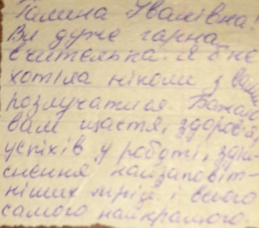 Галина Іванівна!
Ви дуже гарна
вчителька. Я б не
хотіла ніколи з вами
розлучатися. Бажаю
вам щастя, здоров'я,
успіхів у роботі, здій-
снення найзаповіт-
ніших мрій і всього
самого найкращого.